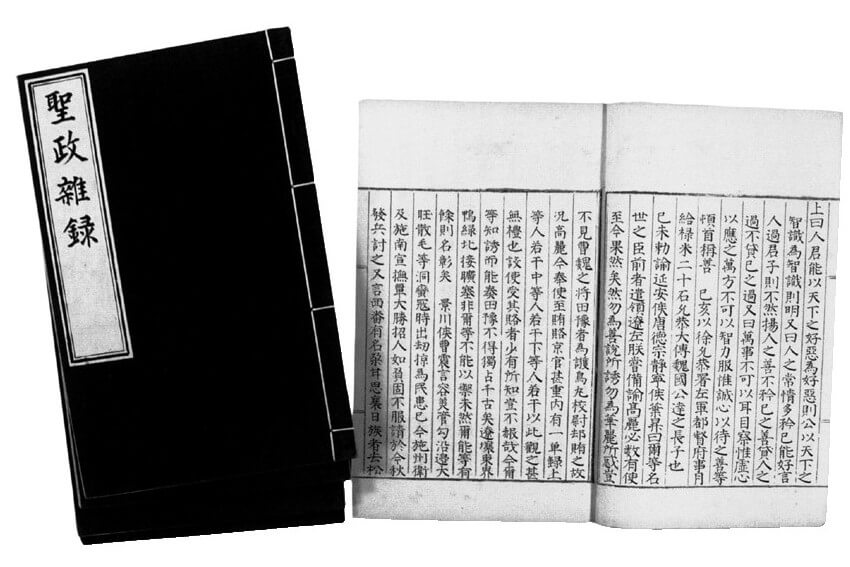 聖政雜録
上曰人君能以天下之好惡為好惡則公以天下之
智識為智識則明又曰人之常情多矜己能好言
人過君子則不然揚人之善不矜己之善貸人之
過不貸己之過又曰萬事不可以耳目察惟虛心
以應之萬方不可以智力服惟誠心以待之善等
頓首稱善 己亥以徐允恭署左軍都督府事月
給祿米二十石允恭大傅魏國公達之長子也
己未勅諭延安侯唐德宗靜寧侯葉昇曰爾等名
世之臣前者遣領遼左朕嘗備諭高麗必數有使
至今果然矣然勿為善說所誘勿為華麗所惑豈
不見曹魏之將田豫者為護烏丸校尉却賄之故
況高麗今奉使至賄賂京官甚重內有一單錄上
等人若干中等人若干下等人若干以此觀之甚
無禮也設使受其賂者少有所知豈不報哉今爾
等知謗而能奏田豫不得獨占千古矣遼壤東界
鴨綠北接曠塞非爾等不能以禦未然爾能等有
餘則名彰矣 景川侯曹震言容美管勾沿邊大
旺散毛等洞蠻恐時出劫掠為民患已令施州衛
及施南宣撫覃大勝招人如負固不服請於今秋
發兵討之又言西番有名柴甘思曩日族者去松